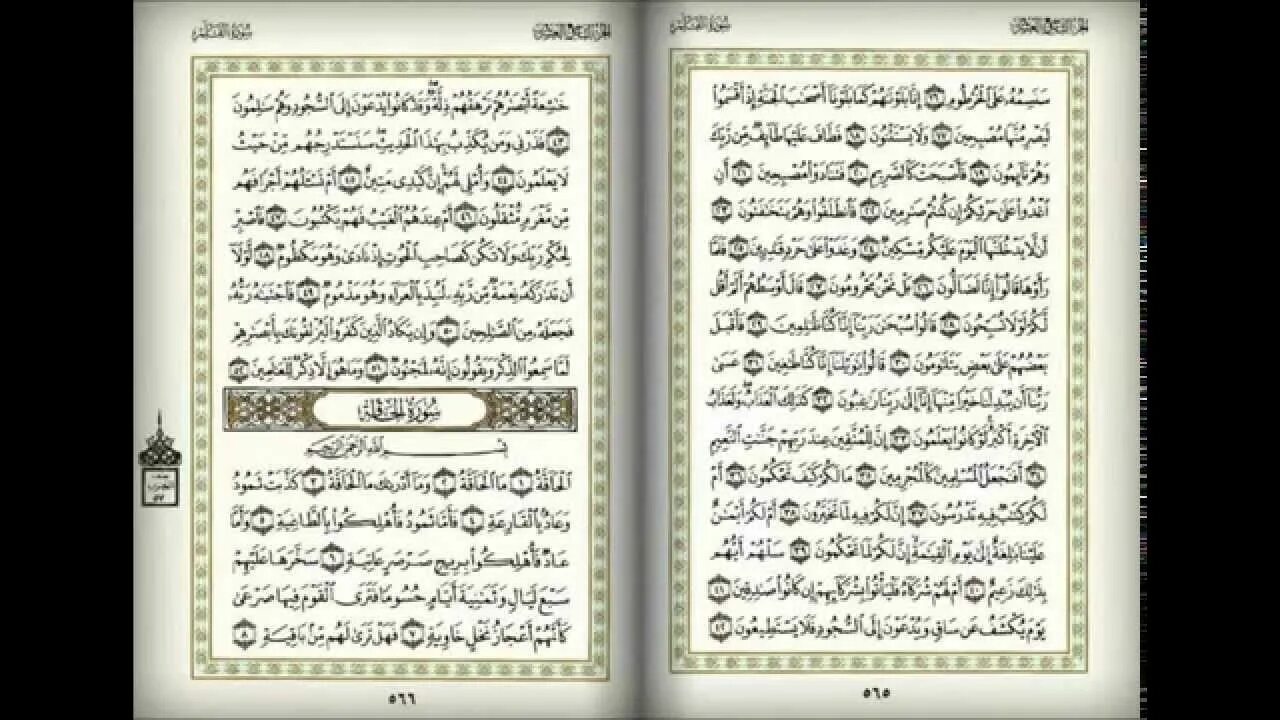 الجزء التاسع والعشرون
سورة القلم
سَنَسِمُهُۥ عَلَى ٱلْخُرْطُومِ ١٦ إِنَّا بَلَوْنَـٰهُمْ كَمَا بَلَوْنَآ أَصْحَـٰبَ ٱلْجَنَّةِ إِذْ أَقْسَمُوا۟
لَيَصْرِمُنَّهَا مُصْبِحِينَ ١٧ وَلَا يَسْتَثْنُونَ ١٨ فَطَافَ عَلَيْهَا طَآئِفٌ مِّن رَّبِّكَ
وَهُمْ نَآئِمُونَ ١٩ فَأَصْبَحَتْ كَٱلصَّرِيمِ ٢٠ فَتَنَادَوْا۟ مُصْبِحِينَ ٢١ أَنِ
ٱغْدُوا۟ عَلَىٰ حَرْثِكُمْ إِن كُنتُمْ صَـٰرِمِينَ ٢٢ فَٱنطَلَقُوا۟ وَهُمْ يَتَخَـٰفَتُونَ ٢٣
أَن لَّا يَدْخُلَنَّهَا ٱلْيَوْمَ عَلَيْكُم مِّسْكِينٌ ٢٤ وَغَدَوْا۟ عَلَىٰ حَرْدٍ قَـٰدِرِينَ ٢٥ فَلَمَّا
رَأَوْهَا قَالُوٓا۟ إِنَّا لَضَآلُّونَ ٢٦ بَلْ نَحْنُ مَحْرُومُونَ ٢٧ قَالَ أَوْسَطُهُمْ أَلَمْ أَقُل
لَّكُمْ لَوْلَا تُسَبِّحُونَ ٢٨ قَالُوا۟ سُبْحَـٰنَ رَبِّنَآ إِنَّا كُنَّا ظَـٰلِمِينَ ٢٩ فَأَقْبَلَ
بَعْضُهُمْ عَلَىٰ بَعْضٍ يَتَلَـٰوَمُونَ ٣٠ قَالُوا۟ يَـٰوَيْلَنَآ إِنَّا كُنَّا طَـٰغِينَ ٣١ عَسَىٰ
رَبُّنَآ أَن يُبْدِلَنَا خَيْرًا مِّنْهَآ إِنَّآ إِلَىٰ رَبِّنَا رَٰغِبُونَ ٣٢ كَذَٰلِكَ ٱلْعَذَابُ وَلَعَذَابُ
ٱلْـَٔاخِرَةِ أَكْبَرُ لَوْ كَانُوا۟ يَعْلَمُونَ ٣٣ إِنَّ لِلْمُتَّقِينَ عِندَ رَبِّهِمْ جَنَّـٰتِ ٱلنَّعِيمِ
٣٤ أَفَنَجْعَلُ ٱلْمُسْلِمِينَ كَٱلْمُجْرِمِينَ ٣٥ مَا لَكُمْ كَيْفَ تَحْكُمُونَ ٣٦ أَمْ
لَكُمْ كِتَـٰبٌ فِيهِ تَدْرُسُونَ ٣٧ إِنَّ لَكُمْ فِيهِ لَمَا تَخَيَّرُونَ ٣٨ أَمْ لَكُمْ أَيْمَـٰنٌ
عَلَيْنَا بَـٰلِغَةٌ إِلَىٰ يَوْمِ ٱلْقِيَـٰمَةِ إِنَّ لَكُمْ لَمَا تَحْكُمُونَ ٣٩ سَلْهُمْ أَيُّهُم
بِذَٰلِكَ زَعِيمٌ ٤٠ أَمْ لَهُمْ شُرَكَآءُ فَلْيَأْتُوا۟ بِشُرَكَآئِهِمْ إِن كَانُوا۟ صَـٰدِقِينَ ٤١
يَوْمَ يُكْشَفُ عَن سَاقٍ وَيُدْعَوْنَ إِلَى ٱلسُّجُودِ فَلَا يَسْتَطِيعُونَ ٤٢
٥٦٥
الجزء التاسع والعشرون
سورة القلم
خَـٰشِعَةً أَبْصَـٰرُهُمْ تَرْهَقُهُمْ ذِلَّةٌ وَقَدْ كَانُوا۟ يُدْعَوْنَ إِلَى ٱلسُّجُودِ وَهُمْ سَـٰلِمُونَ
٤٣ فَذَرْنِى وَمَن يُكَذِّبُ بِهَـٰذَا ٱلْحَدِيثِ سَنَسْتَدْرِجُهُم مِّنْ حَيْثُ
لَا يَعْلَمُونَ ٤٤ وَأُمْلِى لَهُمْ إِنَّ كَيْدِى مَتِينٌ ٤٥ أَمْ تَسْـَٔلُهُمْ أَجْرًا فَهُم
مِّن مَّغْرَمٍ مُّثْقَلُونَ ٤٦ أَمْ عِندَهُمُ ٱلْغَيْبُ فَهُمْ يَكْتُبُونَ ٤٧ فَٱصْبِرْ
لِحُكْمِ رَبِّكَ وَلَا تَكُن كَصَاحِبِ ٱلْحُوتِ إِذْ نَادَىٰ وَهُوَ مَكْظُومٌ ٤٨ لَّوْلَآ
أَن تَدَٰرَكَهُۥ نِعْمَةٌ مِّن رَّبِّهِۦ لَنُبِذَ بِٱلْعَرَآءِ وَهُوَ مَذْمُومٌ ٤٩ فَٱجْتَبَـٰهُ رَبُّهُۥ
فَجَعَلَهُۥ مِنَ ٱلصَّـٰلِحِينَ ٥٠ وَإِن يَكَادُ ٱلَّذِينَ كَفَرُوا۟ لَيُزْلِقُونَكَ بِأَبْصَـٰرِهِمْ
لَمَّا سَمِعُوا۟ ٱلذِّكْرَ وَيَقُولُونَ إِنَّهُۥ لَمَجْنُونٌ ٥١ وَمَا هُوَ إِلَّا ذِكْرٌ لِّلْعَـٰلَمِينَ ٥٢
سُورَةُ الحَاقَّةِ
بِسْمِ ٱللَّهِ ٱلرَّحْمَـٰنِ ٱلرَّحِيمِ
ٱلْحَآقَّةُ ١ مَا ٱلْحَآقَّةُ ٢ وَمَآ أَدْرَىٰكَ مَا ٱلْحَآقَّةُ ٣ كَذَّبَتْ ثَمُودُ
وَعَادٌۢ بِٱلْقَارِعَةِ ٤ فَأَمَّا ثَمُودُ فَأُهْلِكُوا۟ بِٱلطَّاغِيَةِ ٥ وَأَمَّا
عَادٌ فَأُهْلِكُوا۟ بِرِيحٍ صَرْصَرٍ عَاتِيَةٍ ٦ سَخَّرَهَا عَلَيْهِمْ
سَبْعَ لَيَالٍ وَثَمَـٰنِيَةَ أَيَّامٍ حُسُومًا فَتَرَى ٱلْقَوْمَ فِيهَا صَرْعَىٰ
كَأَنَّهُمْ أَعْجَازُ نَخْلٍ خَاوِيَةٍ ٧ فَهَلْ تَرَىٰ لَهُم مِّنۢ بَاقِيَةٍ ٨
٥٦٦